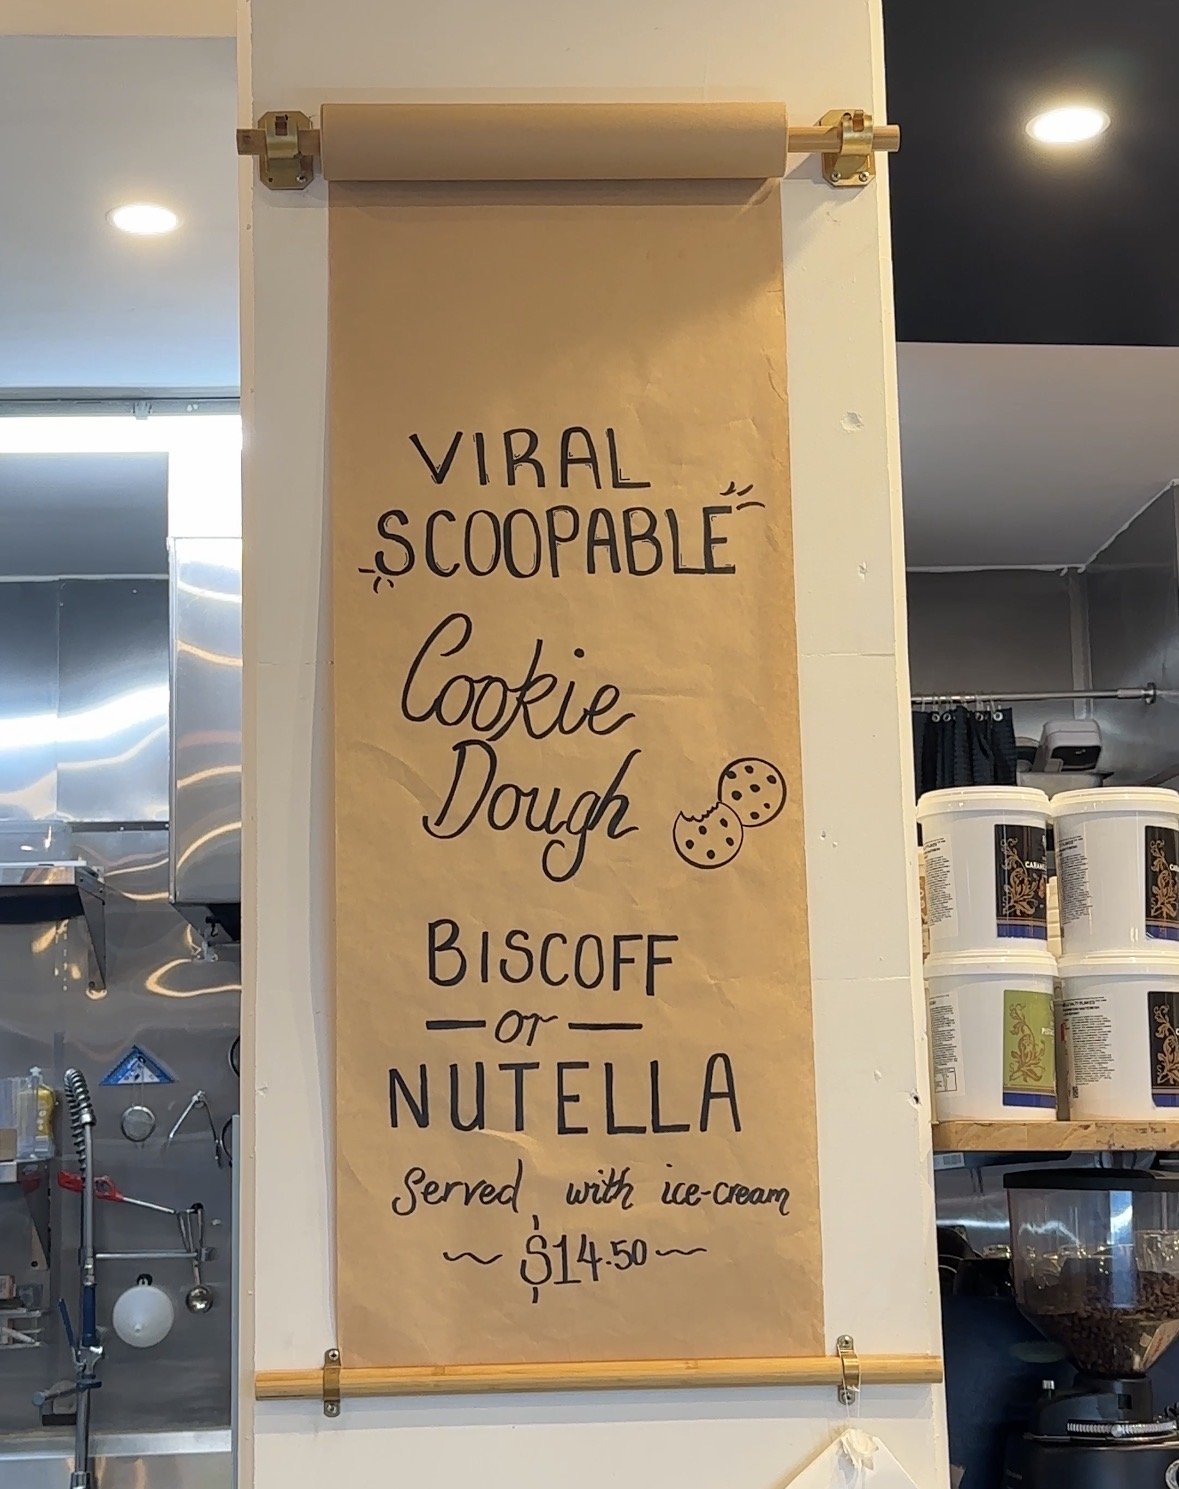 VIRAL
SCOOPABLE
Cookie
Dough
BISCOFF
— or —
NUTELLA
Served with ice-cream
~ $14.50 ~